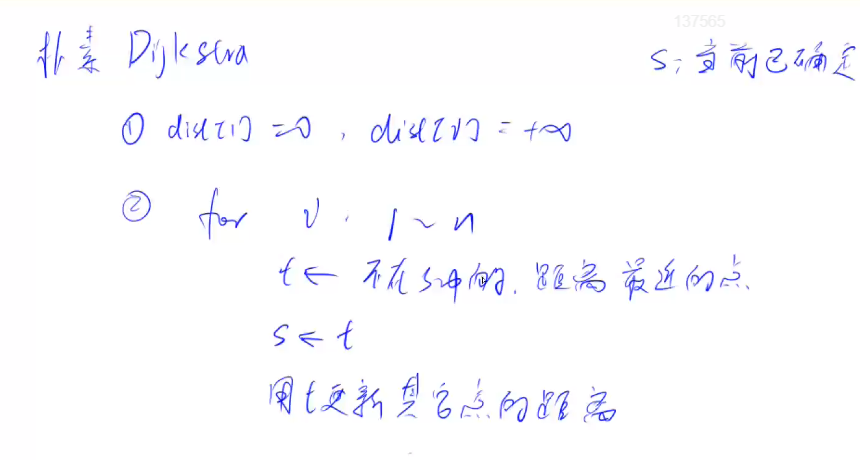 137565
朴素 Dijkstra
s: 当前已确定
① dist[1] = 0, dist[v] = +∞
② for v: 1 ~ n
t ← 不在s中的, 距离最近的点.
s ← t
用t更新其它点的距离